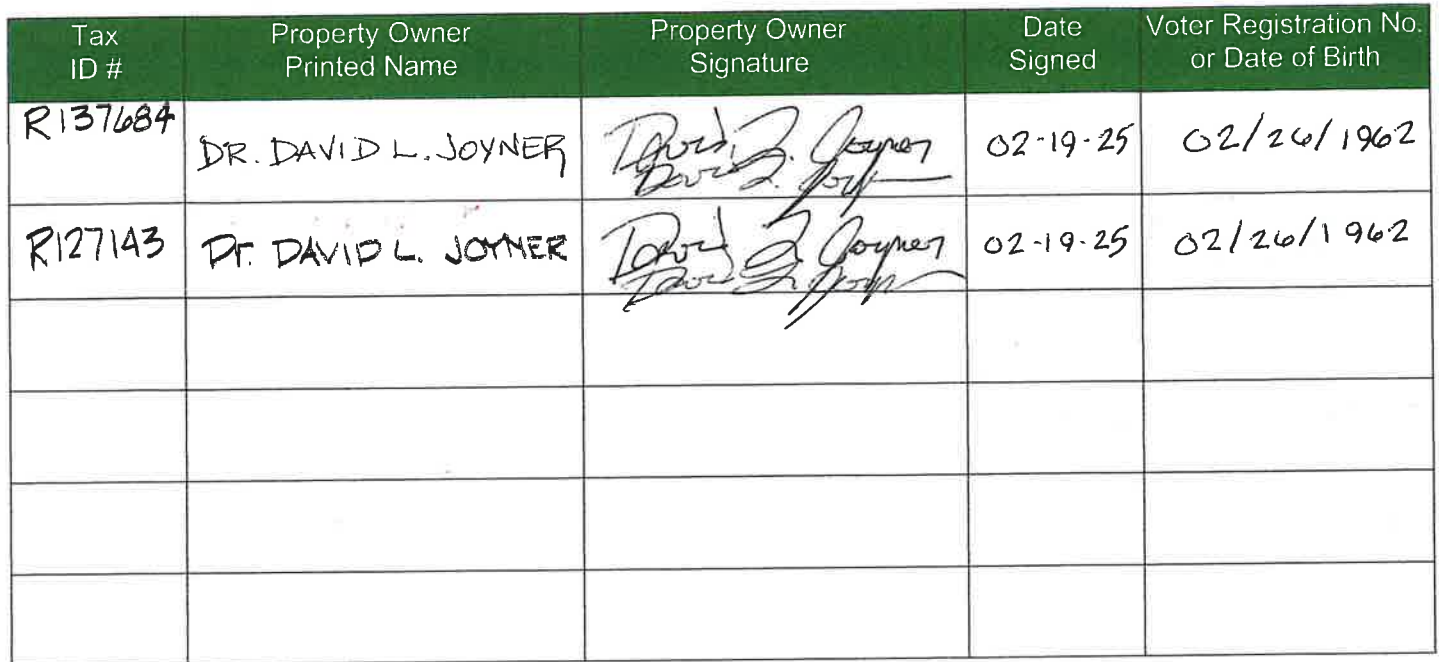 Tax ID # Property Owner Printed Name Property Owner Signature Date Signed Voter Registration No. or Date of Birth
R137684 DR. DAVID L. JOYNER David L. Joyner 02-19-25 02/26/1962
David L. Joyner
R127143 Dr. DAVID L. JOYNER David L. Joyner 02-19-25 02/26/1962
David L. Joyner